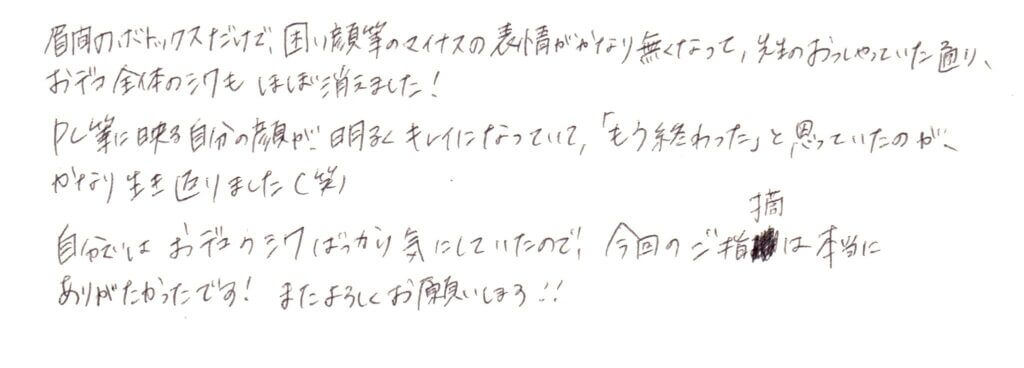 眉間のボトックスだけで、困り顔等のマイナスの表情がかなり無くなって、先生のおっしゃっていた通り、
おデコ全体のシワもほぼ消えました！
PC等に映る自分の顔が、明るくキレイになっていて、「もう終わった」と思っていたのが、
かなり生き返りました（笑）
自分ではおデコのシワばっかり気にしていたので、今回のご指摘は本当に
ありがたかったです！またよろしくお願いします！！